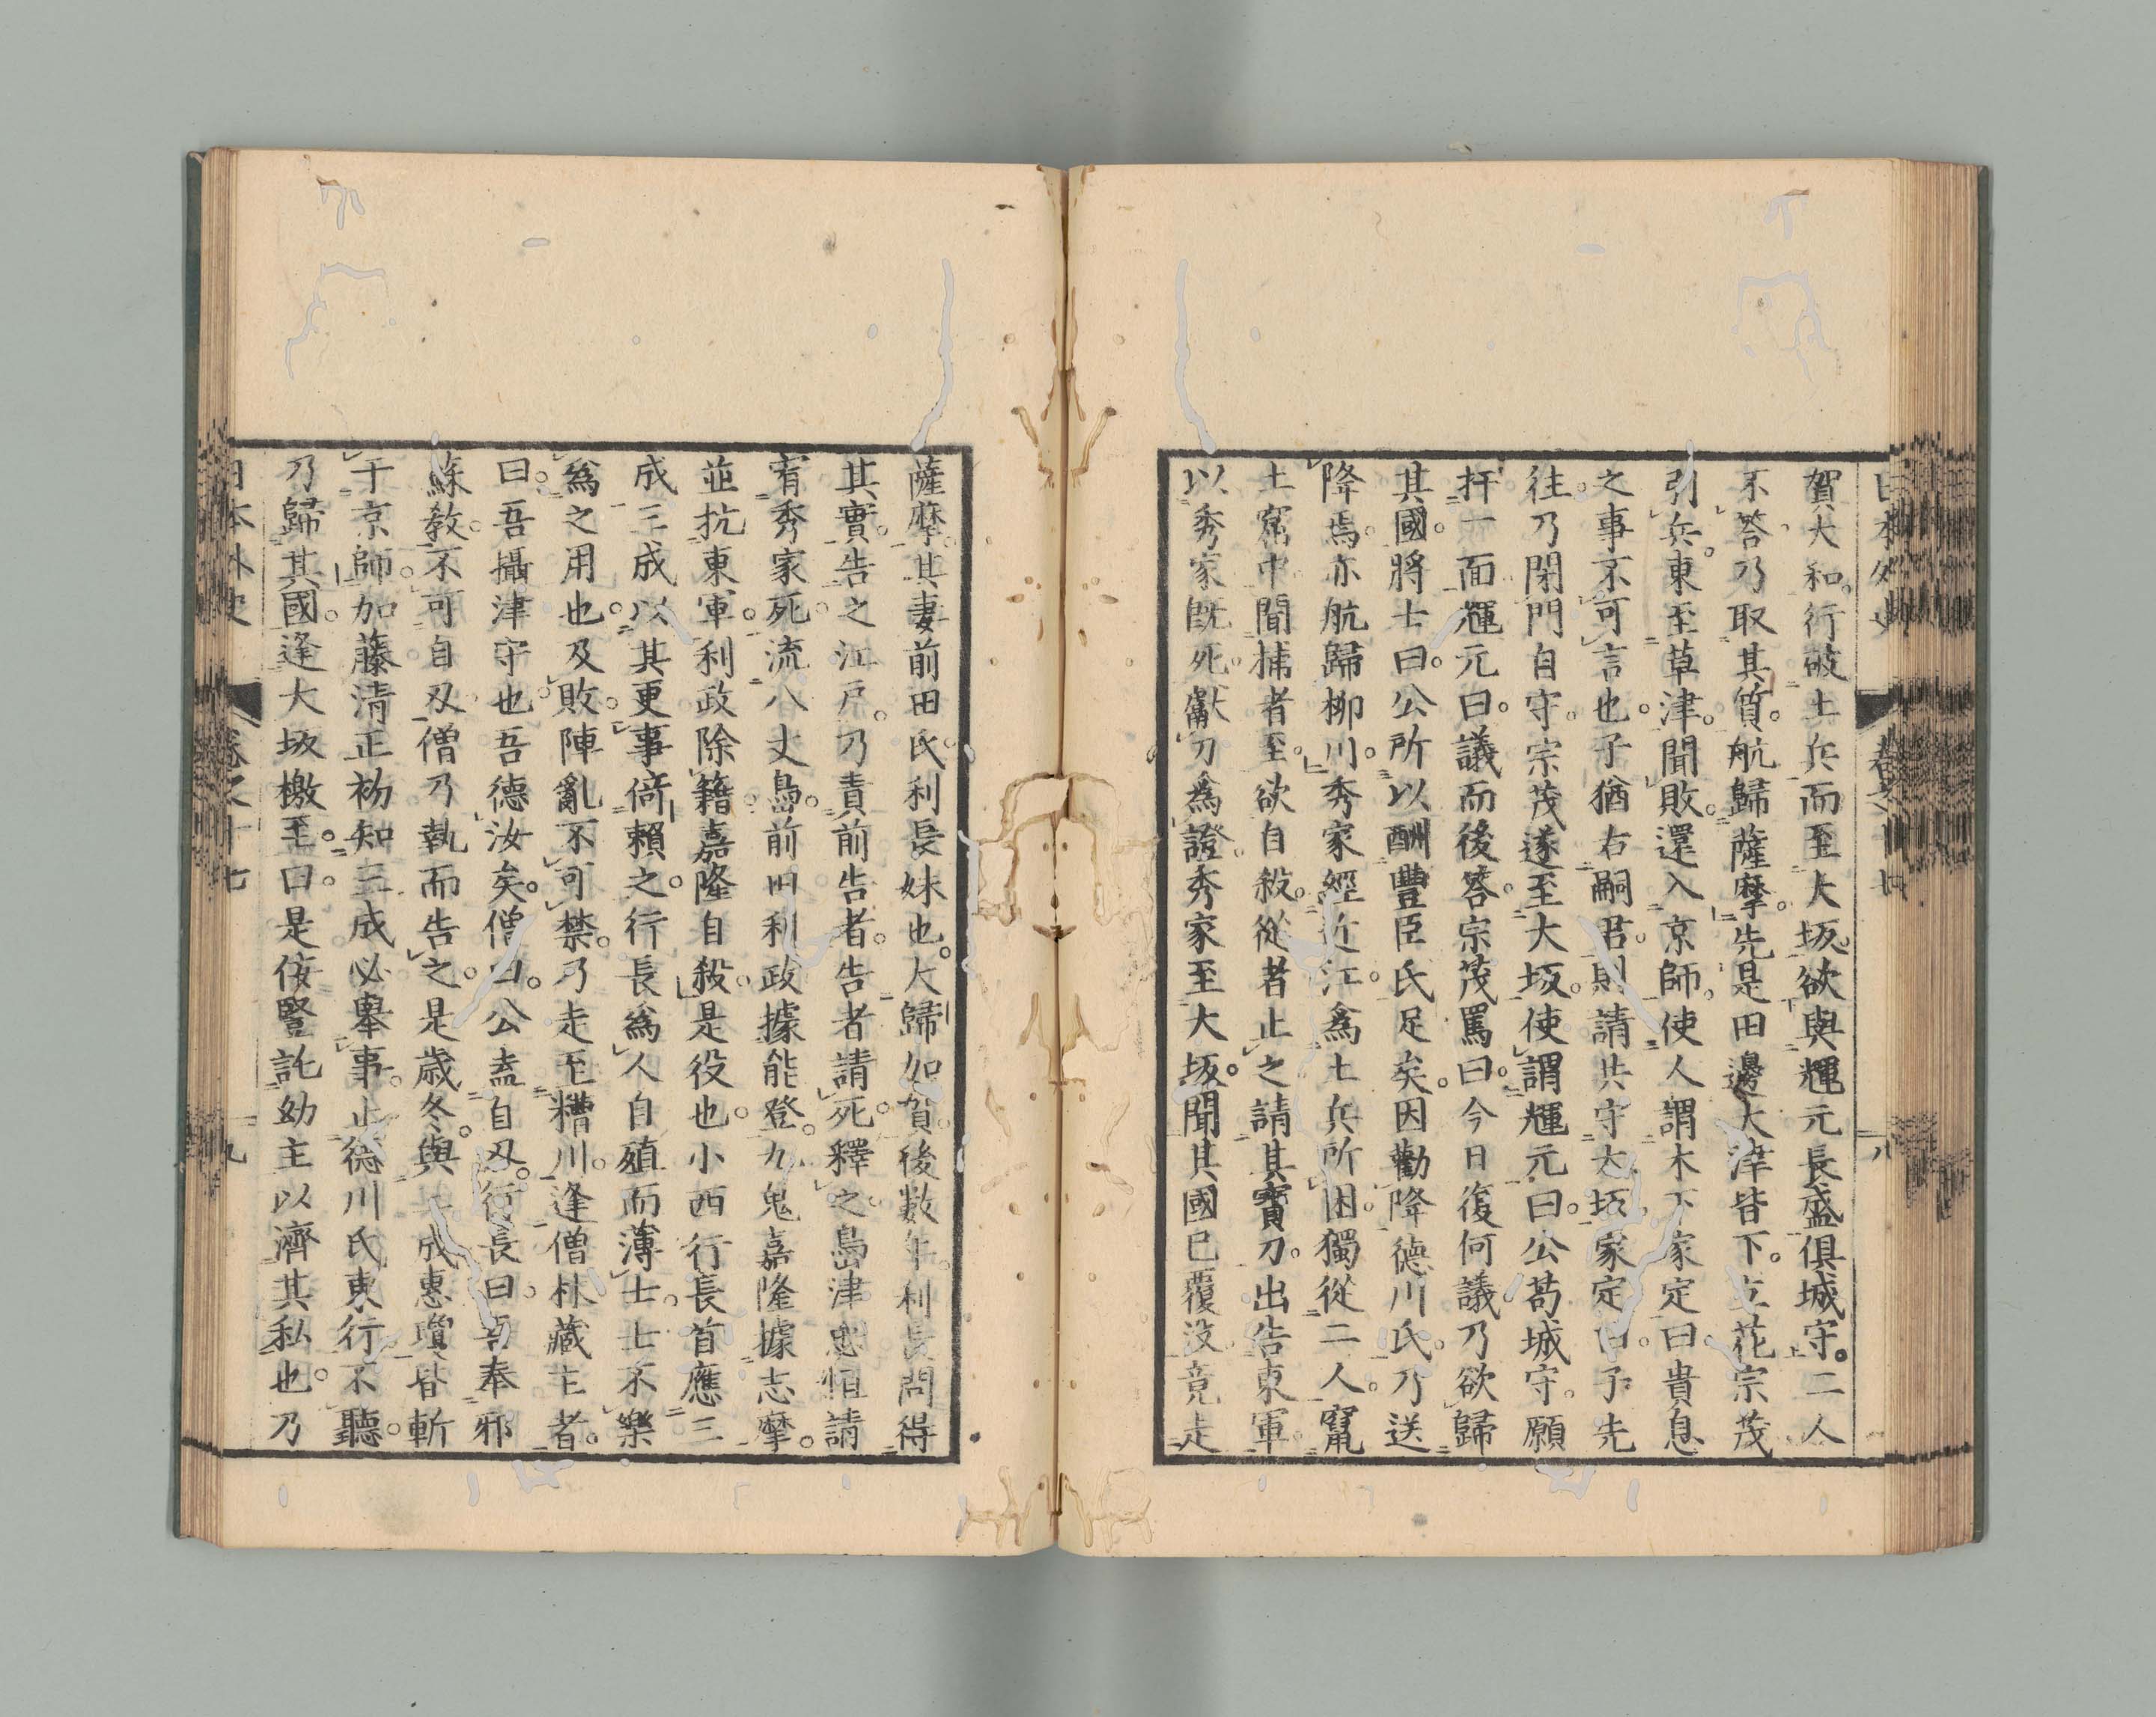 賀大和。行破土兵而至大坂。欲與輝元長盛俱城守。二人
不答。乃取其質。航歸薩摩。先是田邊大津皆下。立花宗茂
引兵。東至草津。聞敗。還入京師。使人謂木下家定曰貴息
之事不可言也。予猶右嗣君。則請共守大坂。家定曰。予先
往。乃閉門自守。宗茂遂至大坂。使謂輝元曰。公苟城守。願
扞一面。輝元曰。議而後答。宗茂罵曰。今日復何議。乃欲歸
其國。將士曰。公所以酬豐臣氏足矣。因勸降德川氏。乃送
降焉。亦航歸柳川。秀家經近江。為土兵所困。獨從二人。竄
土窟中。聞捕者至。欲自殺。從者止之。請其寶刀。出告東軍。
以秀家既死。獻刀為證。秀家至大坂。聞其國已覆没。竟走
日本外史 卷之十七 八
薩摩。其妻前田氏。利長妹也。大歸加賀。後數年。利長問得
其實。告之江戶。乃責前告者。告者請死。釋之。島津忠恒請
宥秀家死。流八丈島。前田利政據能登。九鬼嘉隆據志摩。
並抗東軍。利政除籍。嘉隆自殺。是役也。小西行長首應三
成。三成以其更事。倚賴之。行長為人自殖而薄士。士不樂
為之用也。及敗。陣亂不可禁。乃走至糟川。逢僧林藏主者。
曰。吾攝津守也。吾德汝矣。僧曰。公盍自刃。行長曰。吾奉邪
蘇教。不可自刃。僧乃執而告之。是歲冬。與三成惠瓊皆斬
于京師。加藤清正初知三成必舉事。止德川氏東行。不聽。
乃歸其國。逢大坂檄至。曰。是佞豎託幼主以濟其私也。乃
日本外史 卷之十七 九